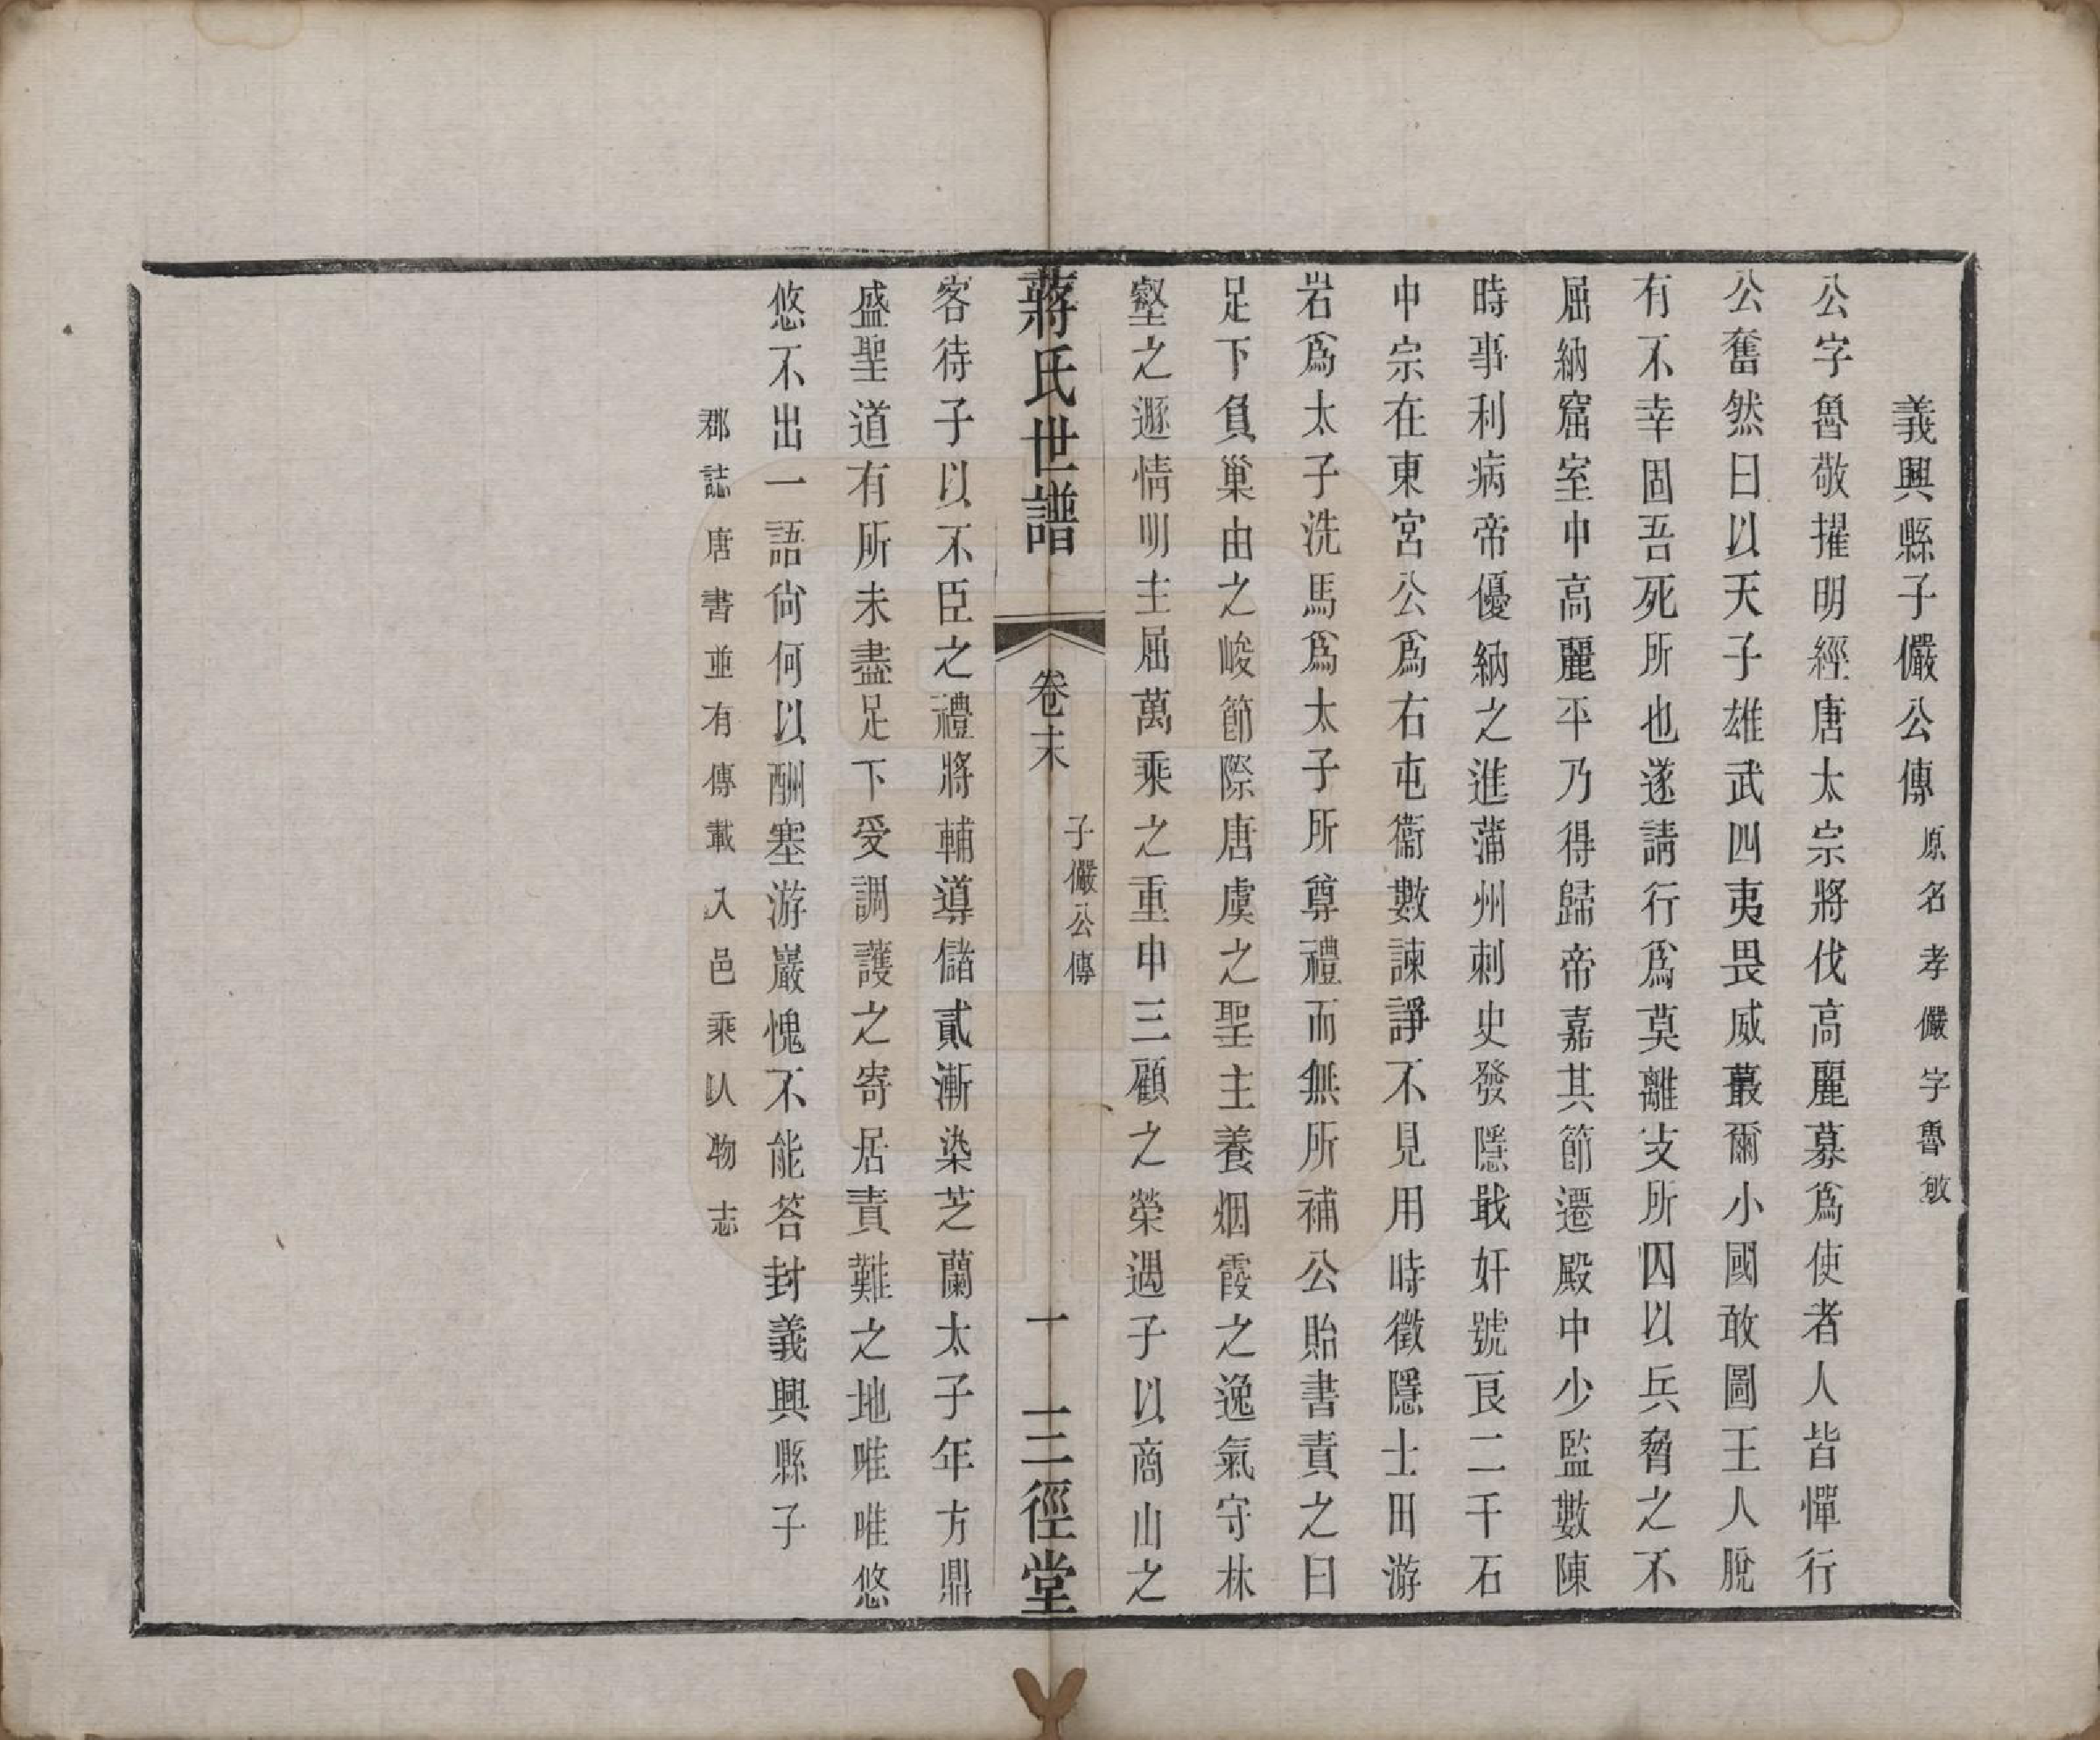 義興縣子儼公傳 原名孝儼字魯敏
公字魯敬擢明經唐太宗將伐高麗募爲使者人皆憚行
公奮然曰以天子雄武四夷畏威蕞爾小國敢圖王人脫
有不幸固吾死所也遂請行爲莫離支所囚以兵脅之不
屈納窟室中高麗平乃得歸帝嘉其節遷殿中少監數陳
時事利病帝優納之進蒲州刺史發隱戢奸號良二千石
中宗在東宮公爲右屯衞數諫諍不見用時徵隱士田游
岩爲太子洗馬爲太子所尊禮而無所補公貽書責之曰
足下負巢由之峻節際唐虞之聖主養烟霞之逸氣守林
壑之遯情明主屈萬乘之重申三顧之榮遇子以商山之
蔣氏世譜 卷末 子儼公傳 一 三徑堂
客待子以不臣之禮將輔導儲貳漸染芝蘭太子年方鼎
盛聖道有所未盡足下受調護之寄居責難之地唯唯悠
悠不出一語尙何以酬塞游巖愧不能答封義興縣子
郡誌唐書並有傳載入邑乘人物志